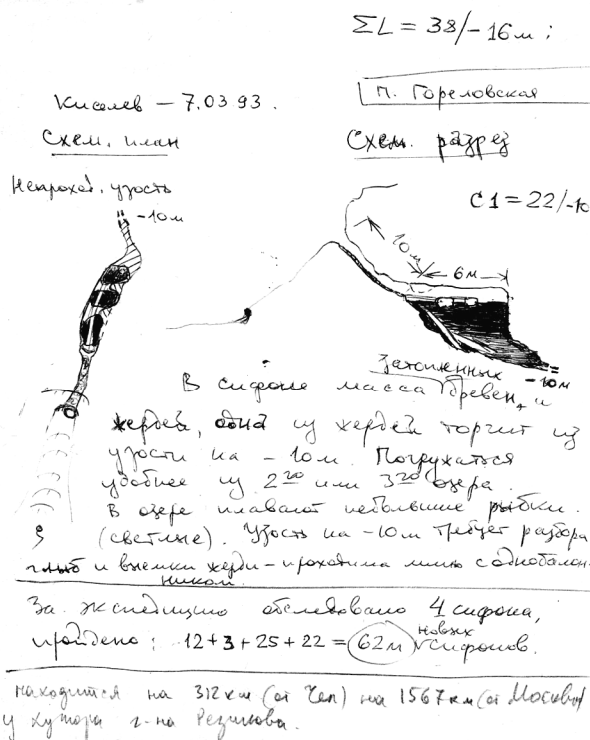 ΣL = 38/-16м;
Киселев – 7.03 93.
п. Гореловская
Схем. план
Схем. разрез
Непроход. узость
-10м
С1 = 22/-10
10м
6м
-10м
затопленных
В сифоне масса бревен, и
жердей, одна из жердей торчит из
узости на -10м. Погружаться
удобнее из 2го или 3го озера.
В озере плавают небольшие рыбки.
(светлые). Узость на -10м требует разбора
глыб и выемки жерди – проходима лишь с однобалон-
ником.
За экспедицию обследовано 4 сифона,
пройдено: 12+3+25+22 = 62м новых сифонов.
находится на 312км (от Чел) на 1567км (от Москвы)
у хутора г-на